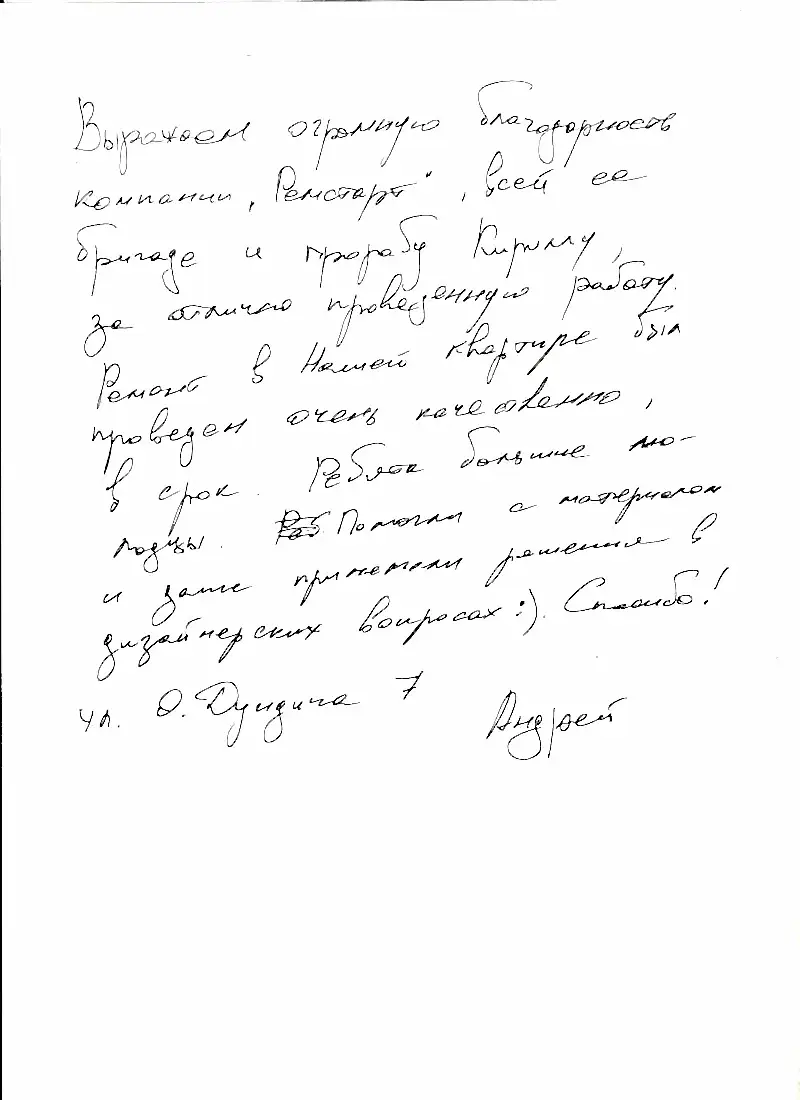 Выражаем огромную благодарность
компании „Ремстарт“, всей ее
бригаде и прорабу Кириллу,
за отлично проведенную работу.
Ремонт в Нашей квартире был
проведен очень качественно,
в срок. Ребята большие мо-
лодцы. Помогли с материалом
и даже принимали решения в
дизайнерских вопросах :). Спасибо!
ул. О. Дундича 7
Андрей